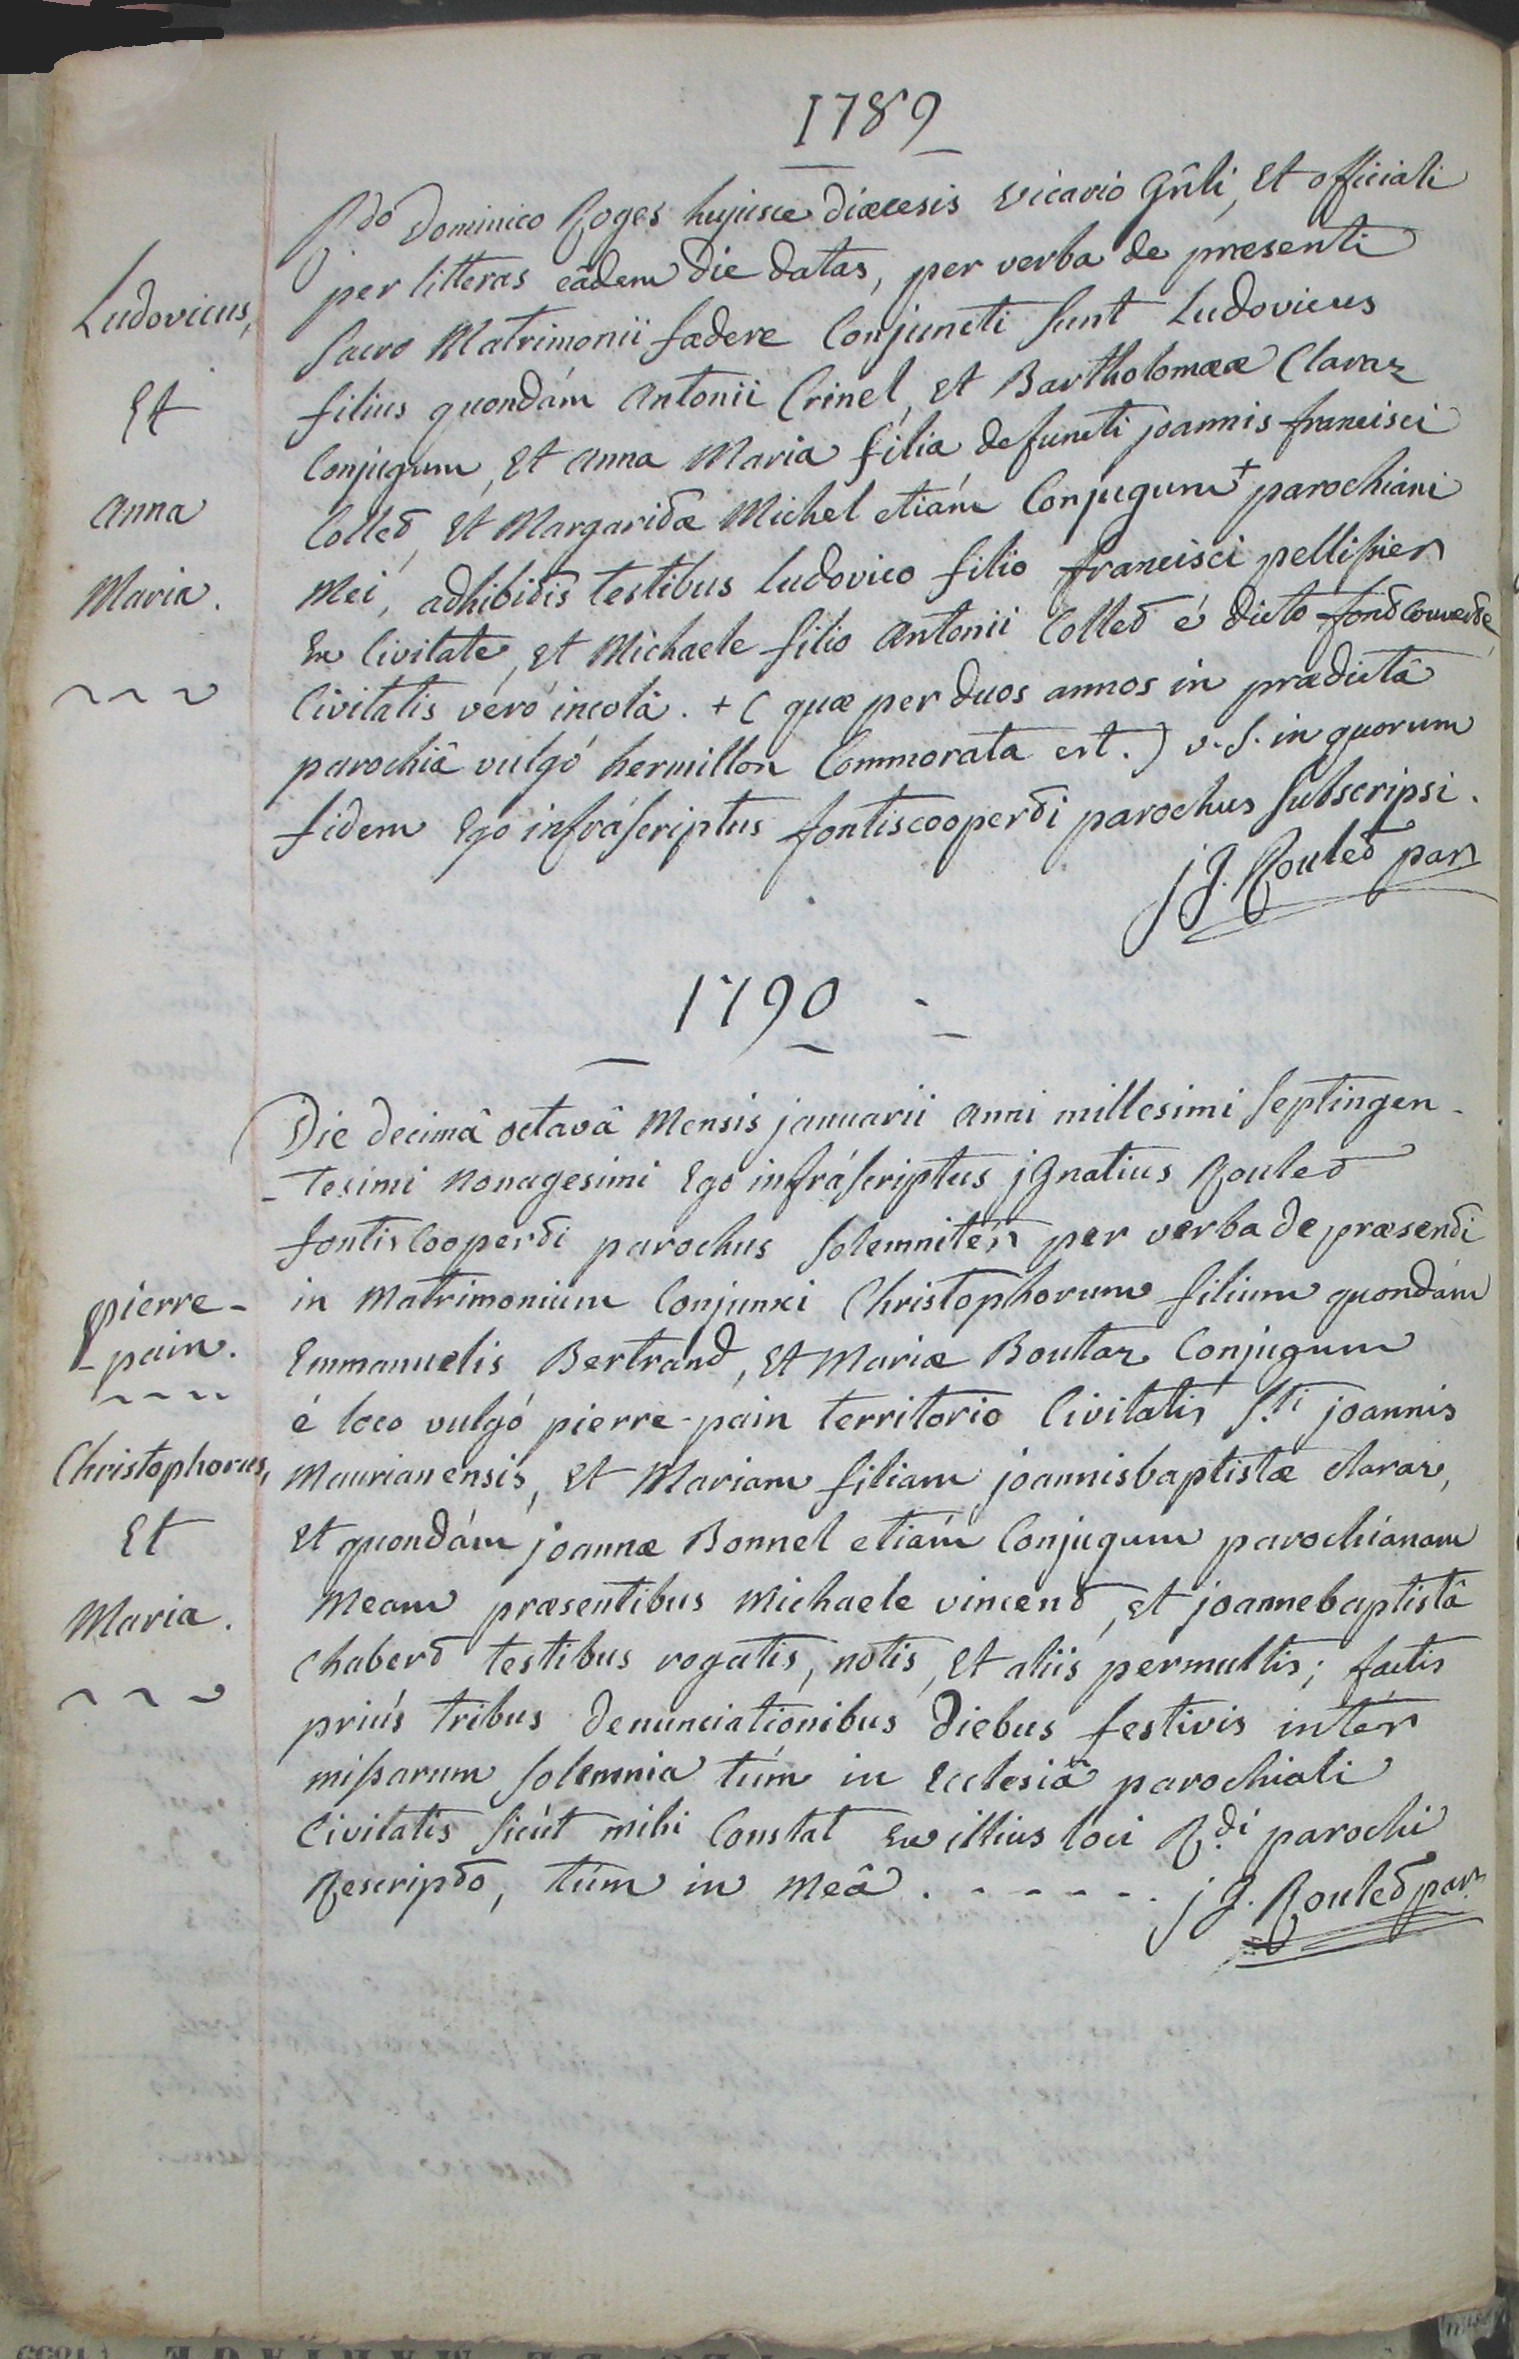 1789
Rdo Dominico Roges hujusce diœcesis vicario Gñli, Et officiali
per litteras eâdem die datas, per verba de præsenti
sacro Matrimonii fœdere Conjuncti sunt Ludovicus
filius quondám Antonii Crinel, et Bartholomææ Claraz
Conjugum, Et Anna Maria filia defuncti joannis-francisci
Colled, Et Margaridæ Michel etiám Conjugum + parochiani
Mei, adhibidis testibus ludovico filio francisci pellissier
Ex Civitate, Et Michaele filio Antonii Colled é dicto fondcouverde,
Civitatis veró incolâ. + ( quæ per duos annos in prædictâ
parochiâ vulgó hermillon Commorata est. ) v. S. in quorum
fidem Ego infráscriptus fontiscooperdi parochus subscripsi.
j J. Rouled par
Ludovicus,
Et
Anna
Maria.
1790
Die decimâ octavâ Mensis januarii anni millesimi septingen-
-tesimi nonagesimi Ego infráscriptus jgnatius Rouled
fontisCooperdi parochus solemnitér per verba de præsendi
in Matrimonium Conjunxi Christophorum filium quondám
Emmanuelis Bertrand, Et Mariæ Boutaz Conjugum
é loco vulgó pierre-pain territorio Civitatis Sti joannis
Maurianensis, Et Mariam filiam joannisbaptistæ claraz,
Et quondám joannæ Bonnel etiám Conjugum parochianam
Meam præsentibus Michaele vincend, et joannebaptistâ
Chaberd testibus rogatis, notis, Et aliis permultis; factis
priús tribus denunciationibus diebus festivis intér
missarum solemnia túm in Ecclesiâ parochiali
Civitatis sicút mihi Constat Ex illius loci Rdi parochi
Rescripdo, túm in Meâ . - - - - - . j J. Rouled par
pierre-
-pain.
Christophorus,
Et
Maria.